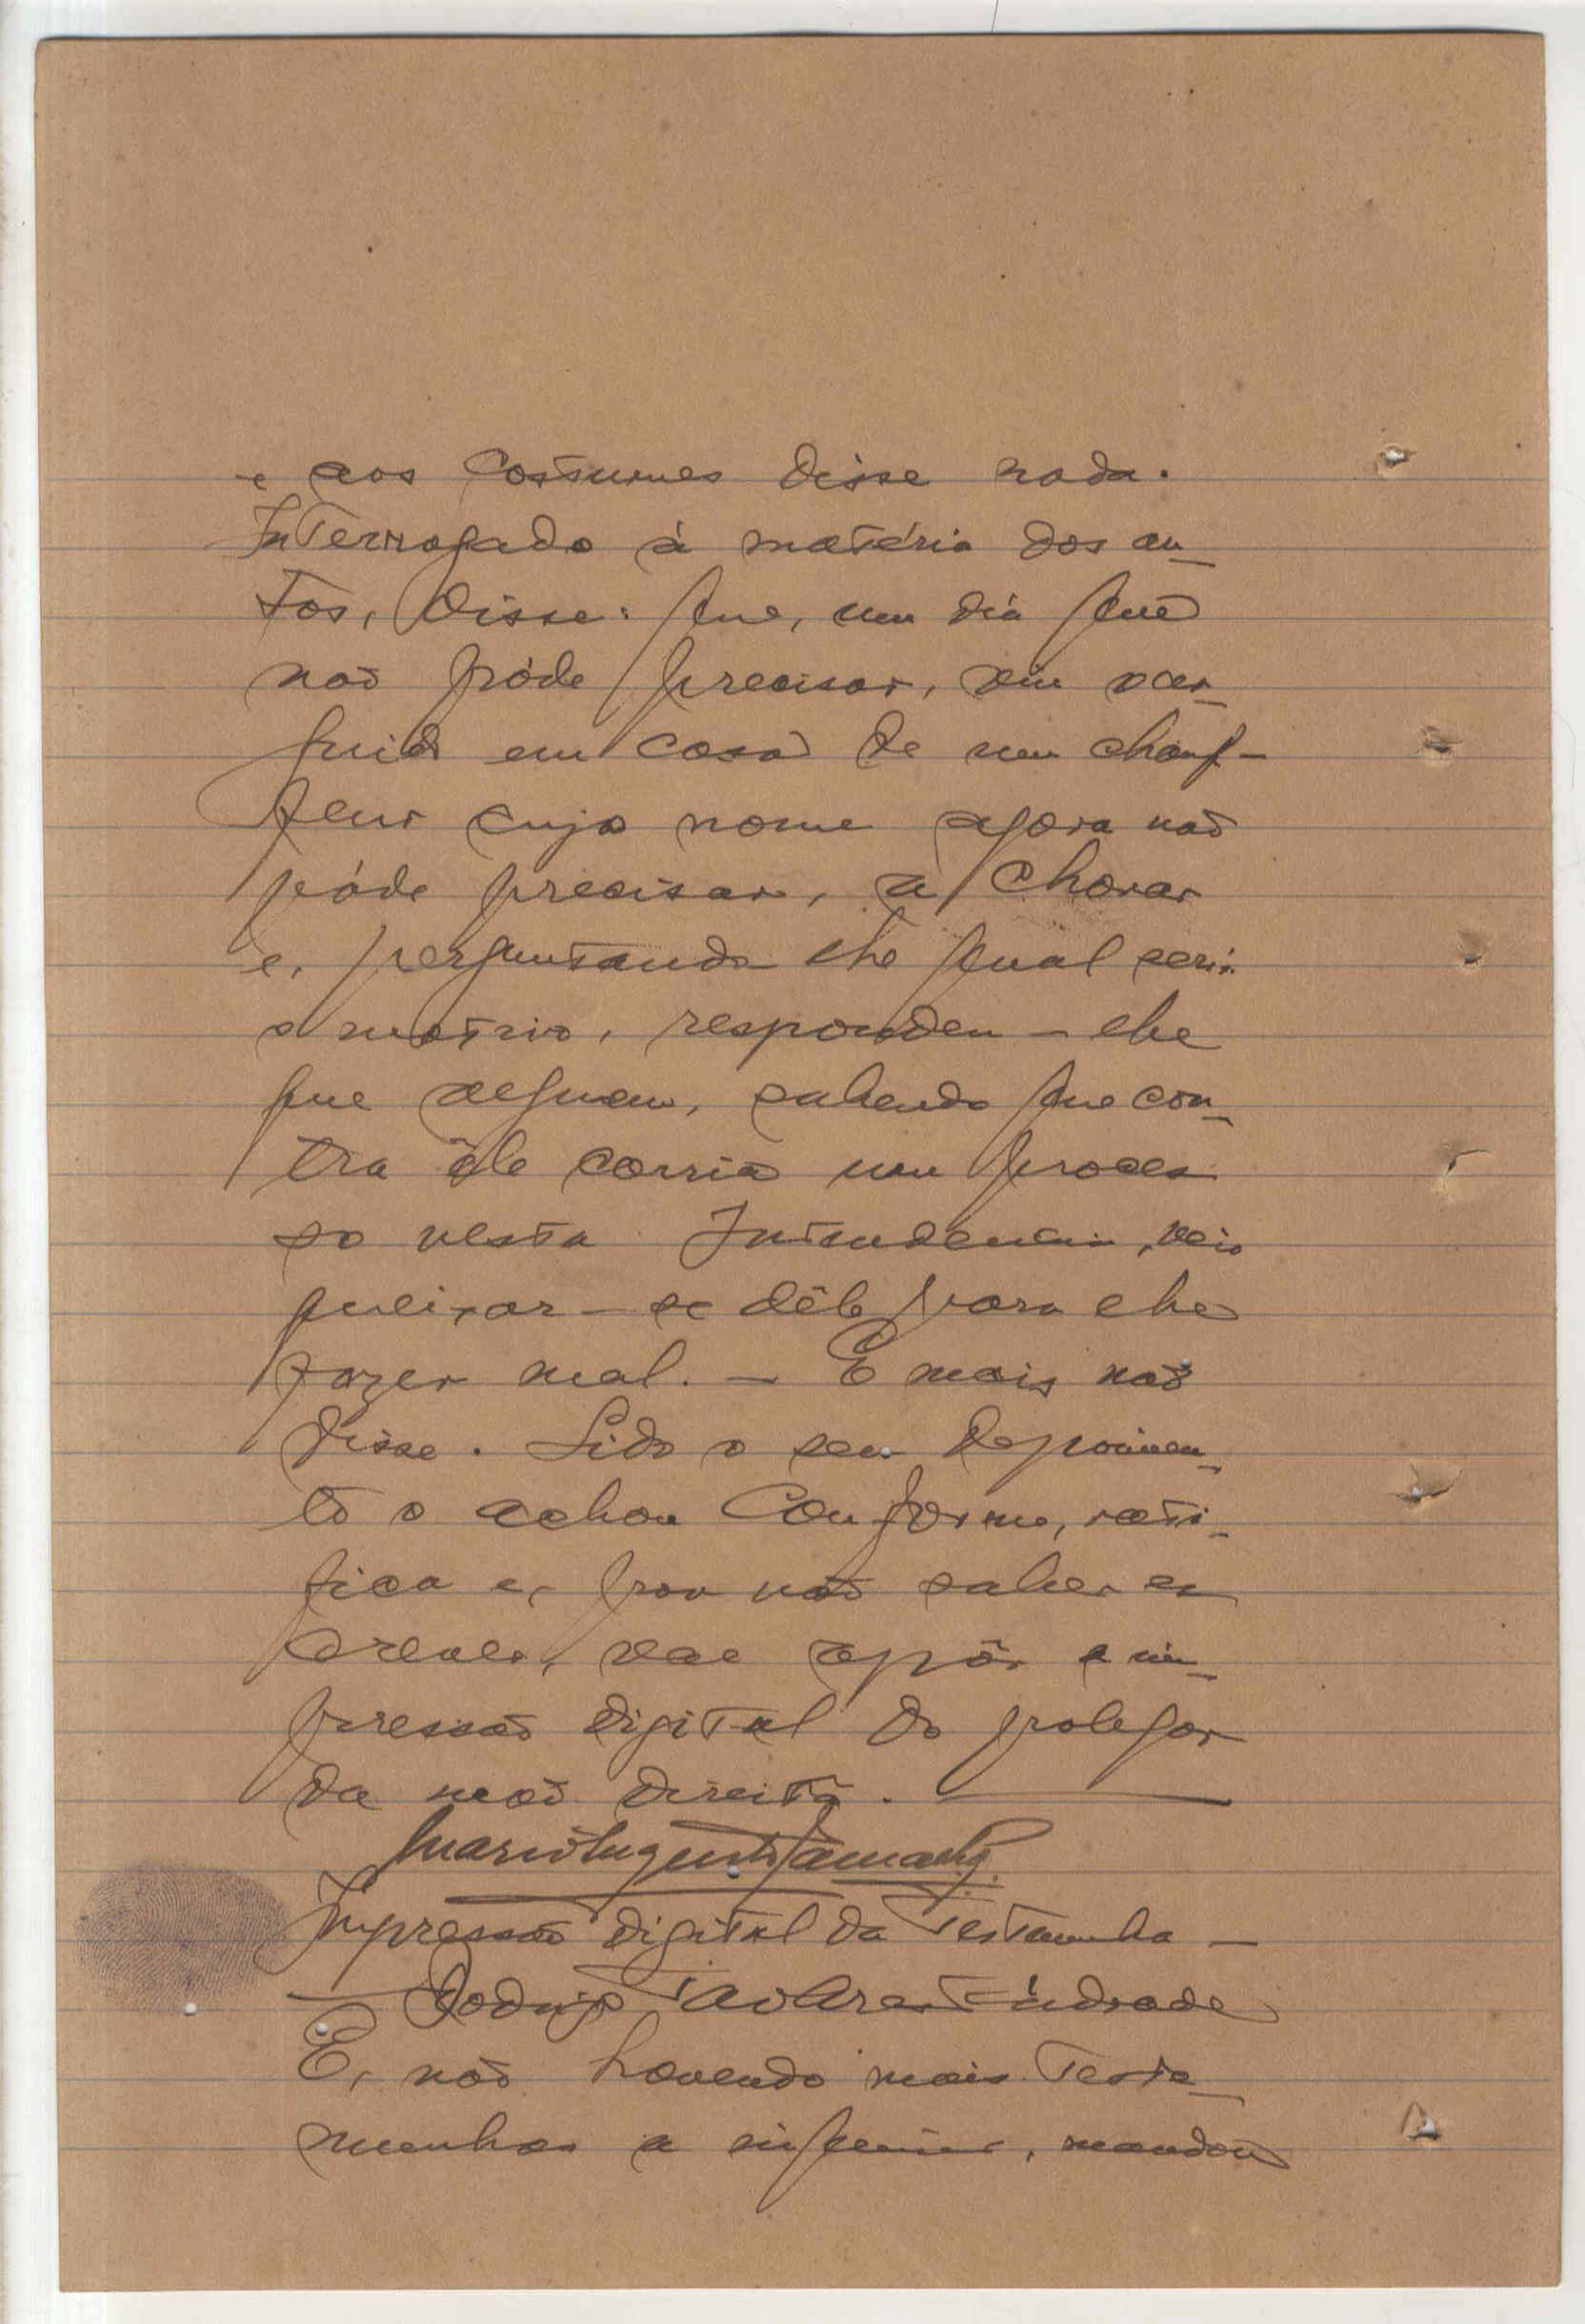 e aos costumes disse nada.
Interrogado à matéria dos au-
tos, disse: que, um dia que
não póde precisar, viu o ar-
guido em casa de um chauf-
feur cujo nome agora não
póde precisar, a chorar
e, perguntando-lhe qual seria
o motivo, respondeu-lhe
que alguem, sabendo que con-
tra êle corria um proces
so nesta Intendencia, veio
queixar-se dêle para lhe
fazer mal. - E mais não
disse. Lido o seu depoimen-
to o achou conforme, rati-
fica e, por não saber es
crever, vae apôr a im-
pressão digital do polegar
da mão direita.
Impressão digital da testemunha -
Rodrigo Tavares Andrade
E, não havendo mais teste-
munhas a inquirir, mandou